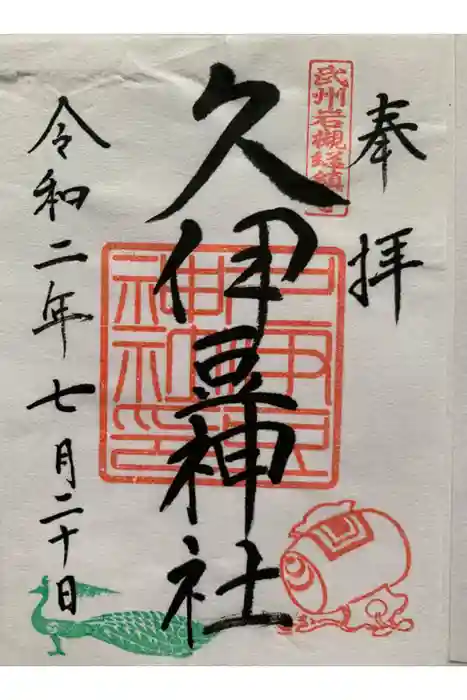 奉拝
武州岩槻総鎮守
久伊豆神社
令和二年七月二十日